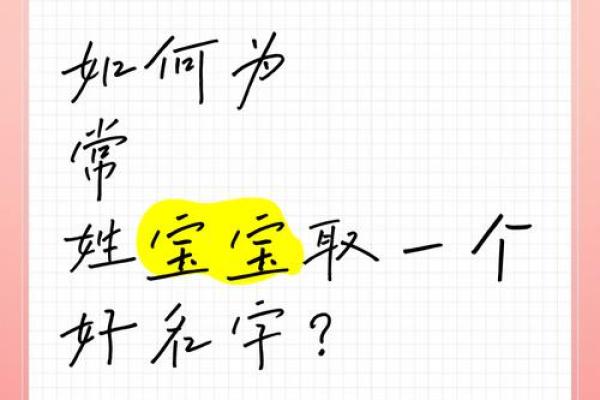 如何为
常
姓宝宝取一个
好名字？